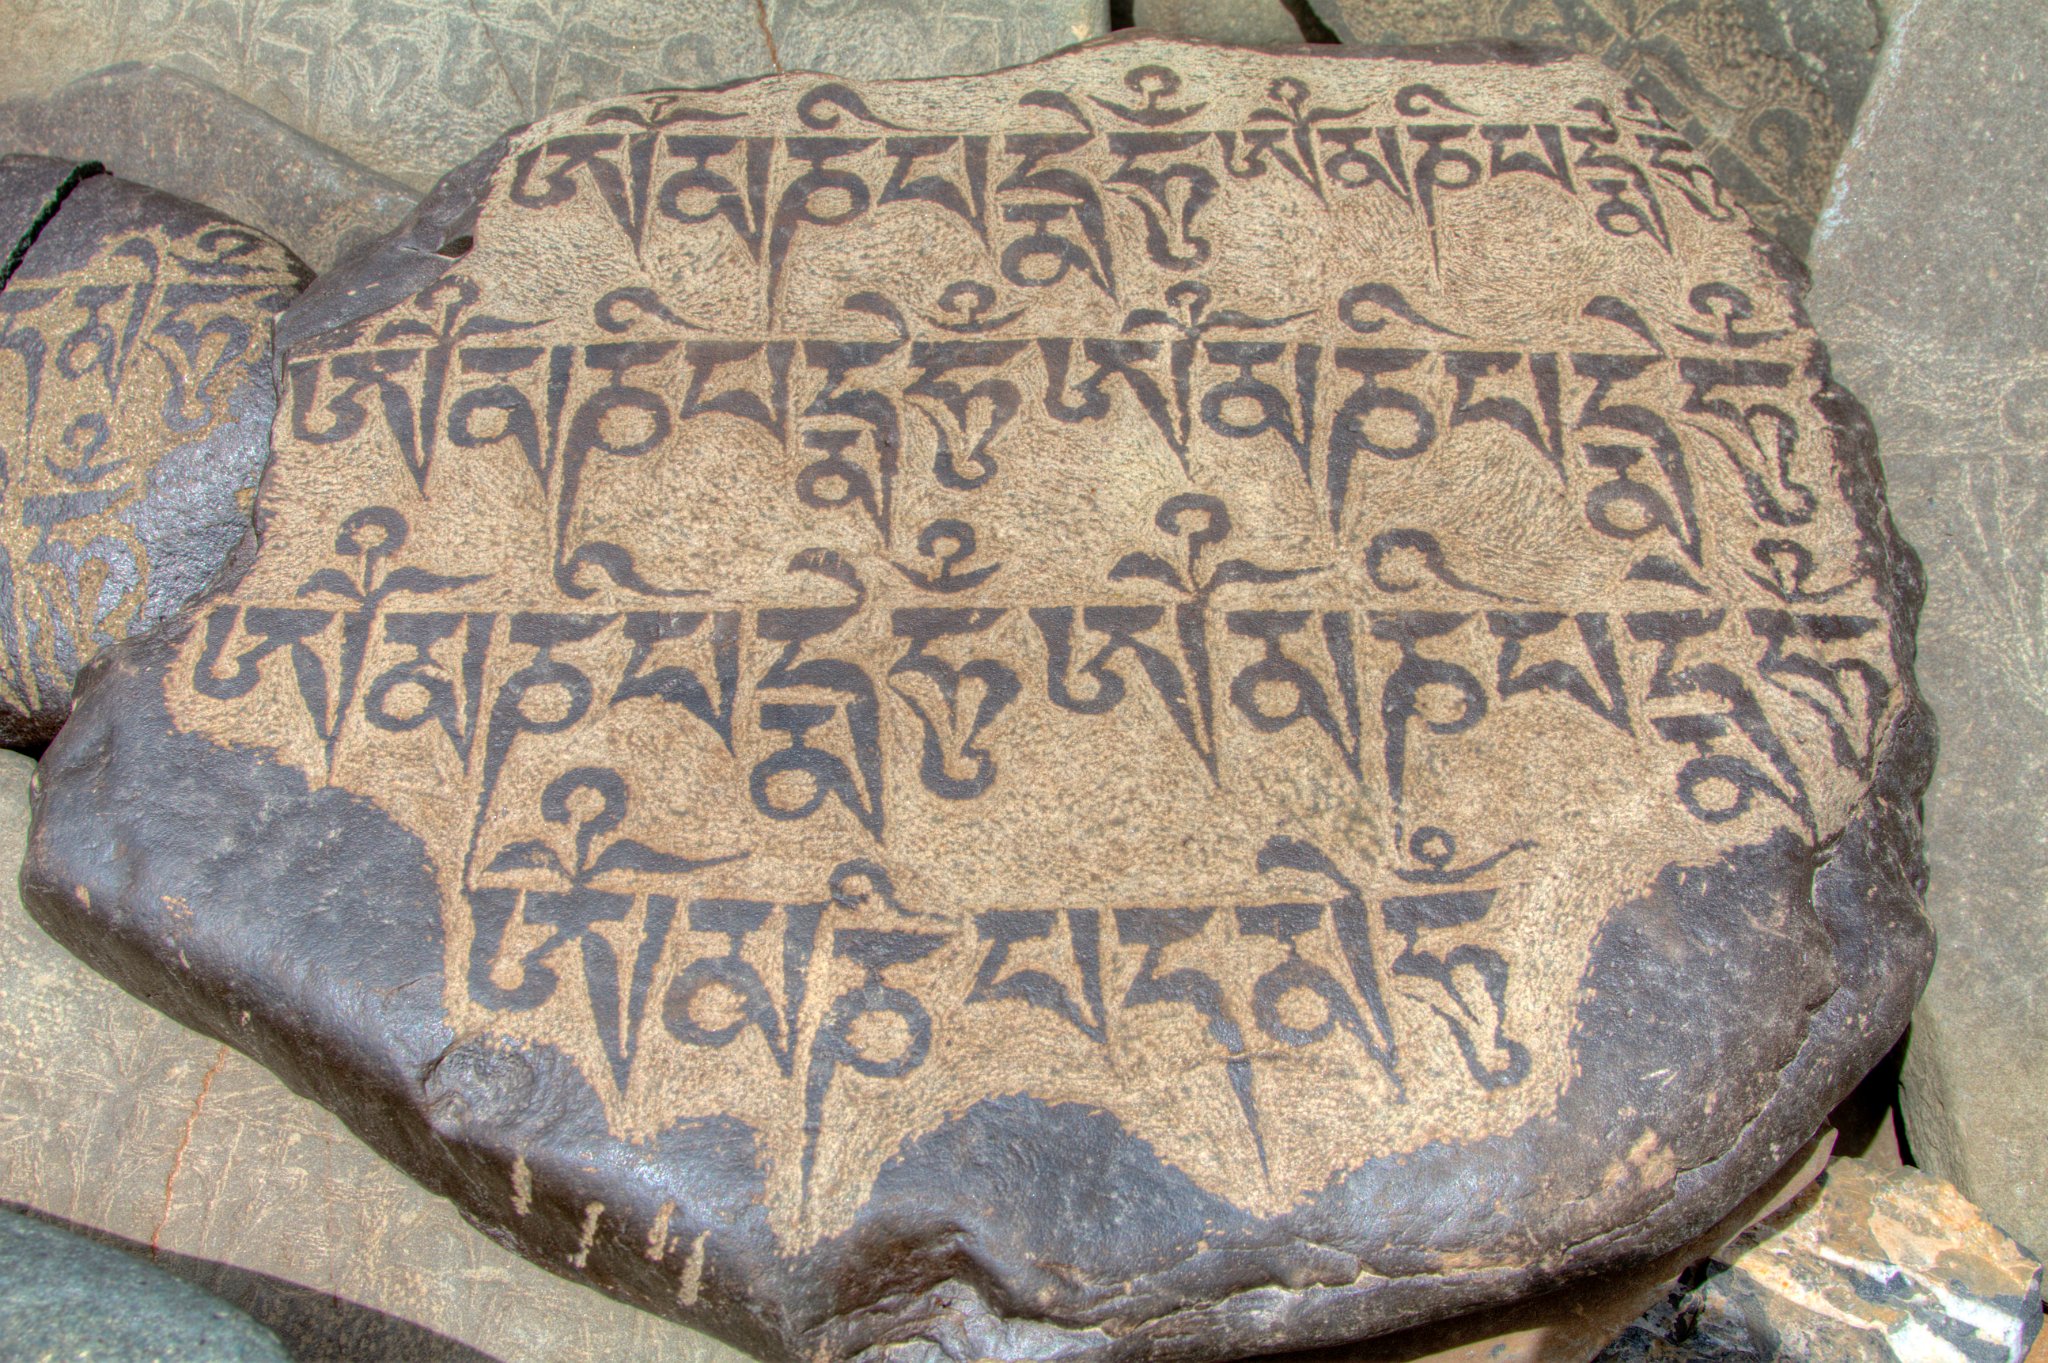 ཨོཾམཎིཔདྨེཧུྃཨོཾམཎིཔདྨེཧུྃ
ཨོཾམཎིཔདྨེཧུྃཨོཾམཎིཔདྨེཧུྃ
ཨོཾམཎིཔདྨེཧུྃཨོཾམཎིཔདྨེཧུྃ
ཨོཾམཎིཔདམེཧུྃ